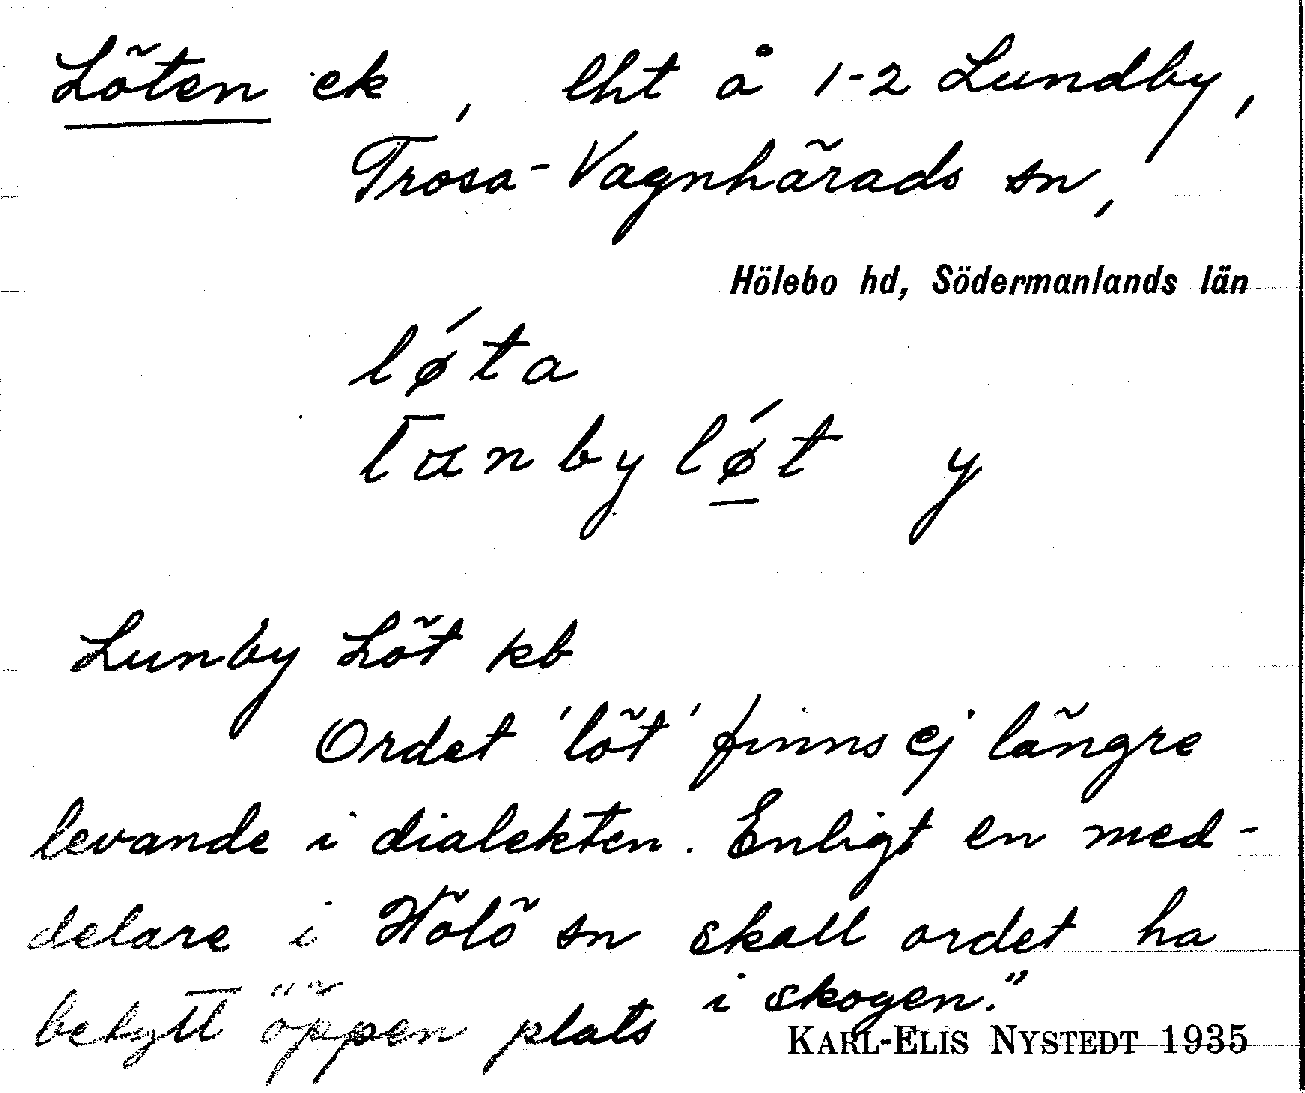 Löten ek, lht å 1-2 Lundby,
Trosa-Vagnhärads sn,
Hölebo hd, Södermanlands län
lǿta
lanbylǿt y
Lunby Löt kb
Ordet 'löt' finns ej längre
levande i dialekten. Enligt en med-
delare i Hölö sn skall ordet ha
betytt "öppen plats i skogen."
KARL-ELIS NYSTEDT 1935